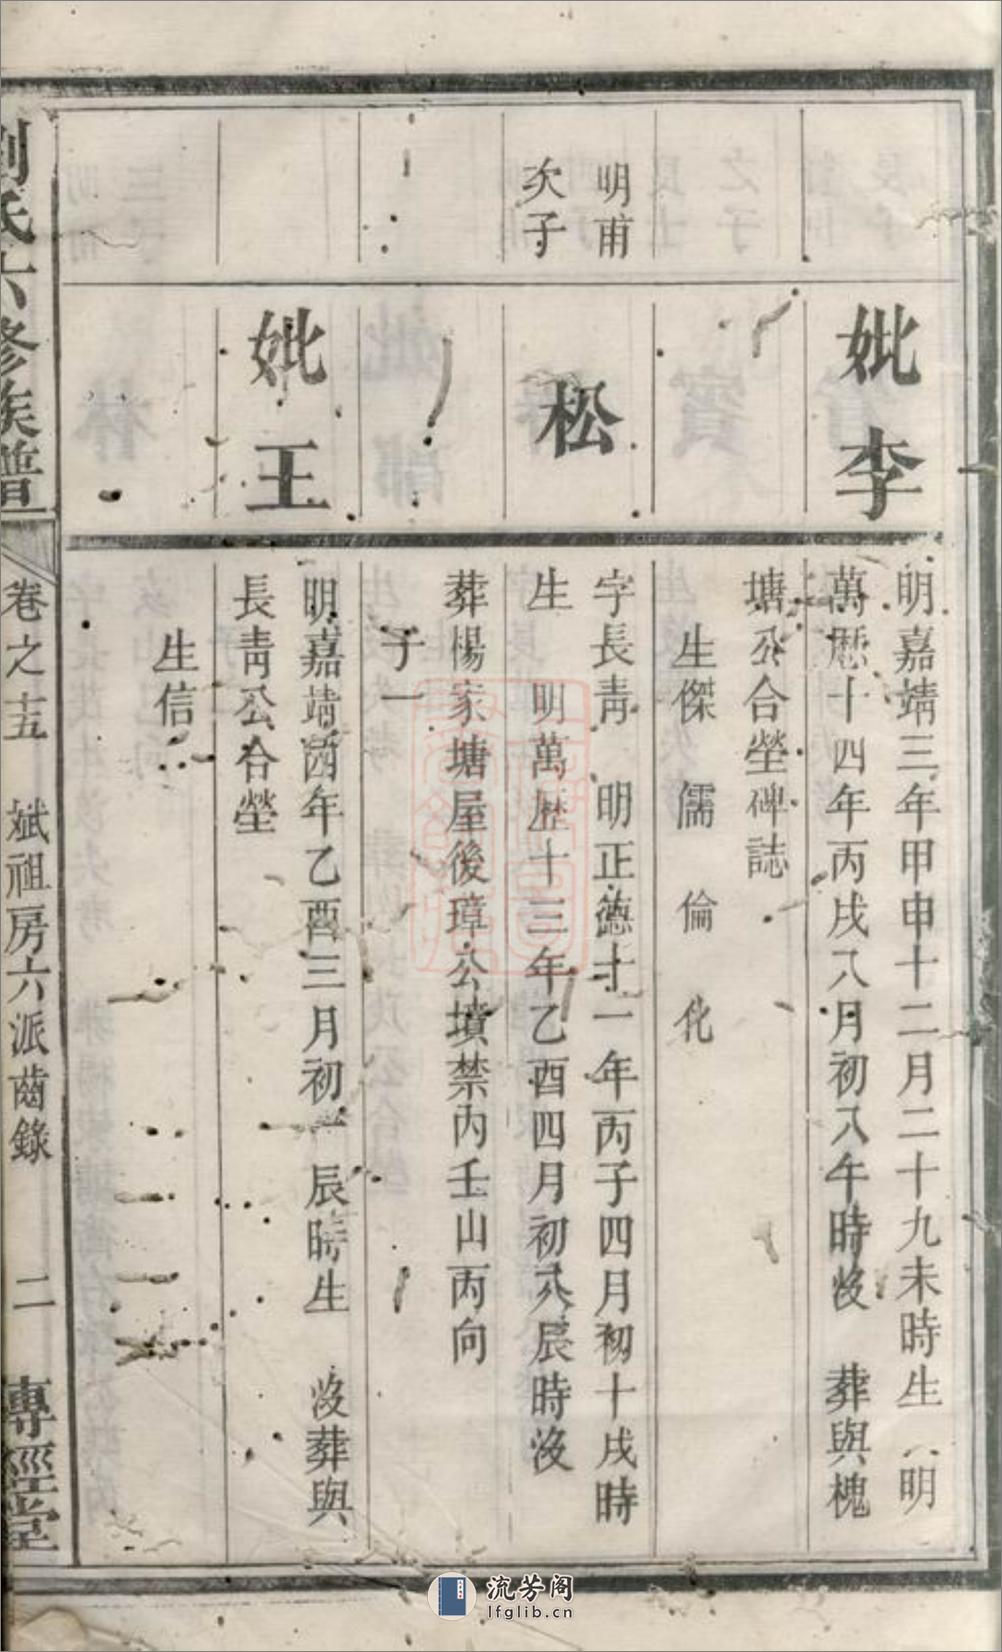 妣李
明嘉靖三年甲申十二月二十九未時生 明
萬厯十四年丙戌八月初八午時沒 葬與槐
塘公合塋碑誌
生傑 儒 倫 化
明甫
次子
松
字長靑 明正德十一年丙子四月初十戌時
生 明萬歷十三年乙酉四月初八辰時沒
葬楊家塘屋後璋公墳禁內壬山丙向
子一
妣王
明嘉靖酉年乙酉三月初一辰時生 沒葬與
長靑公合塋
生信
劉氏六修族譜
卷之十五 斌祖房六派齒錄 二 專經堂
流芳阁
lfglib.cn